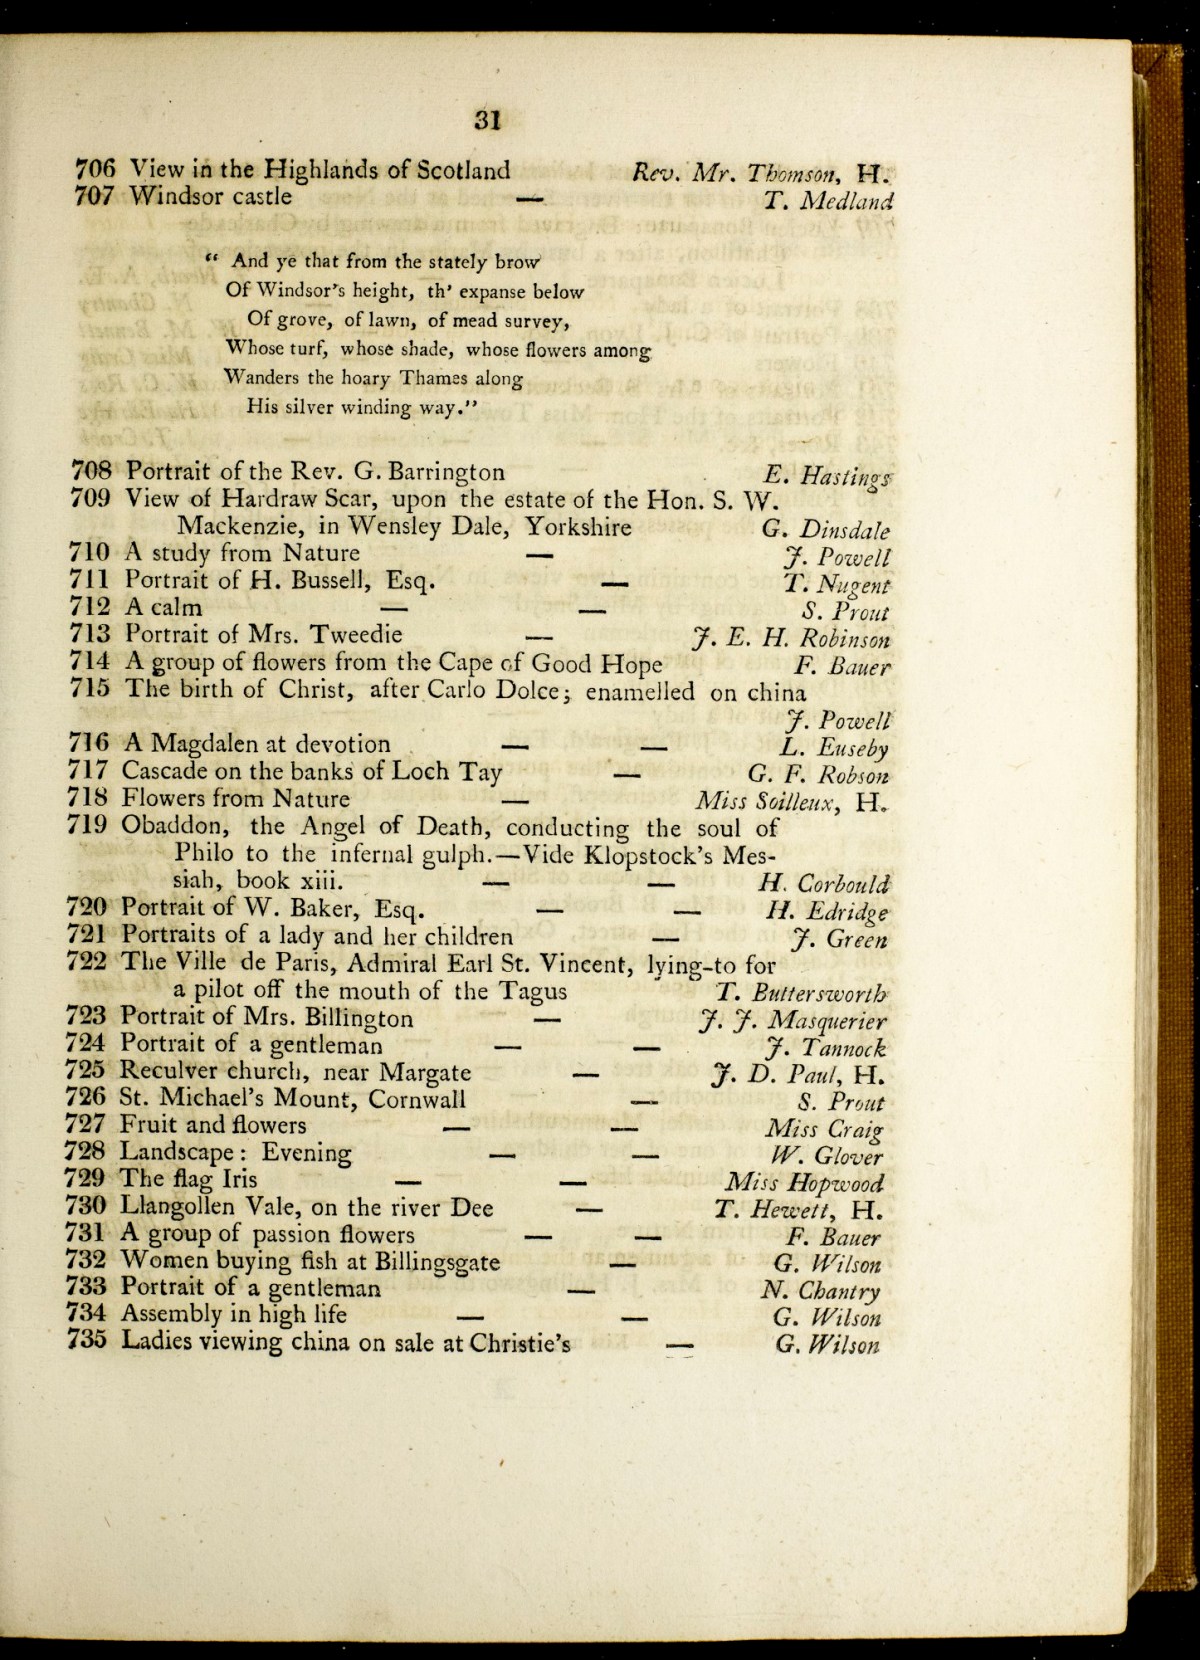 31
706 View in the Highlands of Scotland Rev. Mr. Thomson, H.
707 Windsor castle — T. Medland
“ And ye that from the stately brow
Of Windsor’s height, th’ expanse below
Of grove, of lawn, of mead survey,
Whose turf, whose shade, whose flowers among
Wanders the hoary Thames along
His silver winding way.”
708 Portrait of the Rev. G. Barrington E. Hastings
709 View of Hardraw Scar, upon the estate of the Hon. S. W.
Mackenzie, in Wensley Dale, Yorkshire G. Dinsdale
710 A study from Nature — J. Powell
711 Portrait of H. Bussell, Esq. — T. Nugent
712 A calm — — S. Prout
713 Portrait of Mrs. Tweedie — J. E. H. Robinson
714 A group of flowers from the Cape of Good Hope F. Bauer
715 The birth of Christ, after Carlo Dolce; enamelled on china
J. Powell
716 A Magdalen at devotion — — L. Euseby
717 Cascade on the banks of Loch Tay — G. F. Robson
718 Flowers from Nature — Miss Soilleux, H.
719 Obaddon, the Angel of Death, conducting the soul of
Philo to the infernal gulph.—Vide Klopstock’s Mes-
siah, book xiii. — — H. Corbould
720 Portrait of W. Baker, Esq. — — H. Edridge
721 Portraits of a lady and her children — J. Green
722 The Ville de Paris, Admiral Earl St. Vincent, lying-to for
a pilot off the mouth of the Tagus T. Buttersworth
723 Portrait of Mrs. Billington — J. J. Masquerier
724 Portrait of a gentleman — — J. Tannock
725 Reculver church, near Margate — J. D. Paul, H.
726 St. Michael’s Mount, Cornwall — S. Prout
727 Fruit and flowers — — Miss Craig
728 Landscape : Evening — — W. Glover
729 The flag Iris — — Miss Hopwood
730 Llangollen Vale, on the river Dee — T. Hewett, H.
731 A group of passion flowers — — F. Bauer
732 Women buying fish at Billingsgate — G. Wilson
733 Portrait of a gentleman — N. Chantry
734 Assembly in high life — — G. Wilson
735 Ladies viewing china on sale at Christie’s — G. Wilson